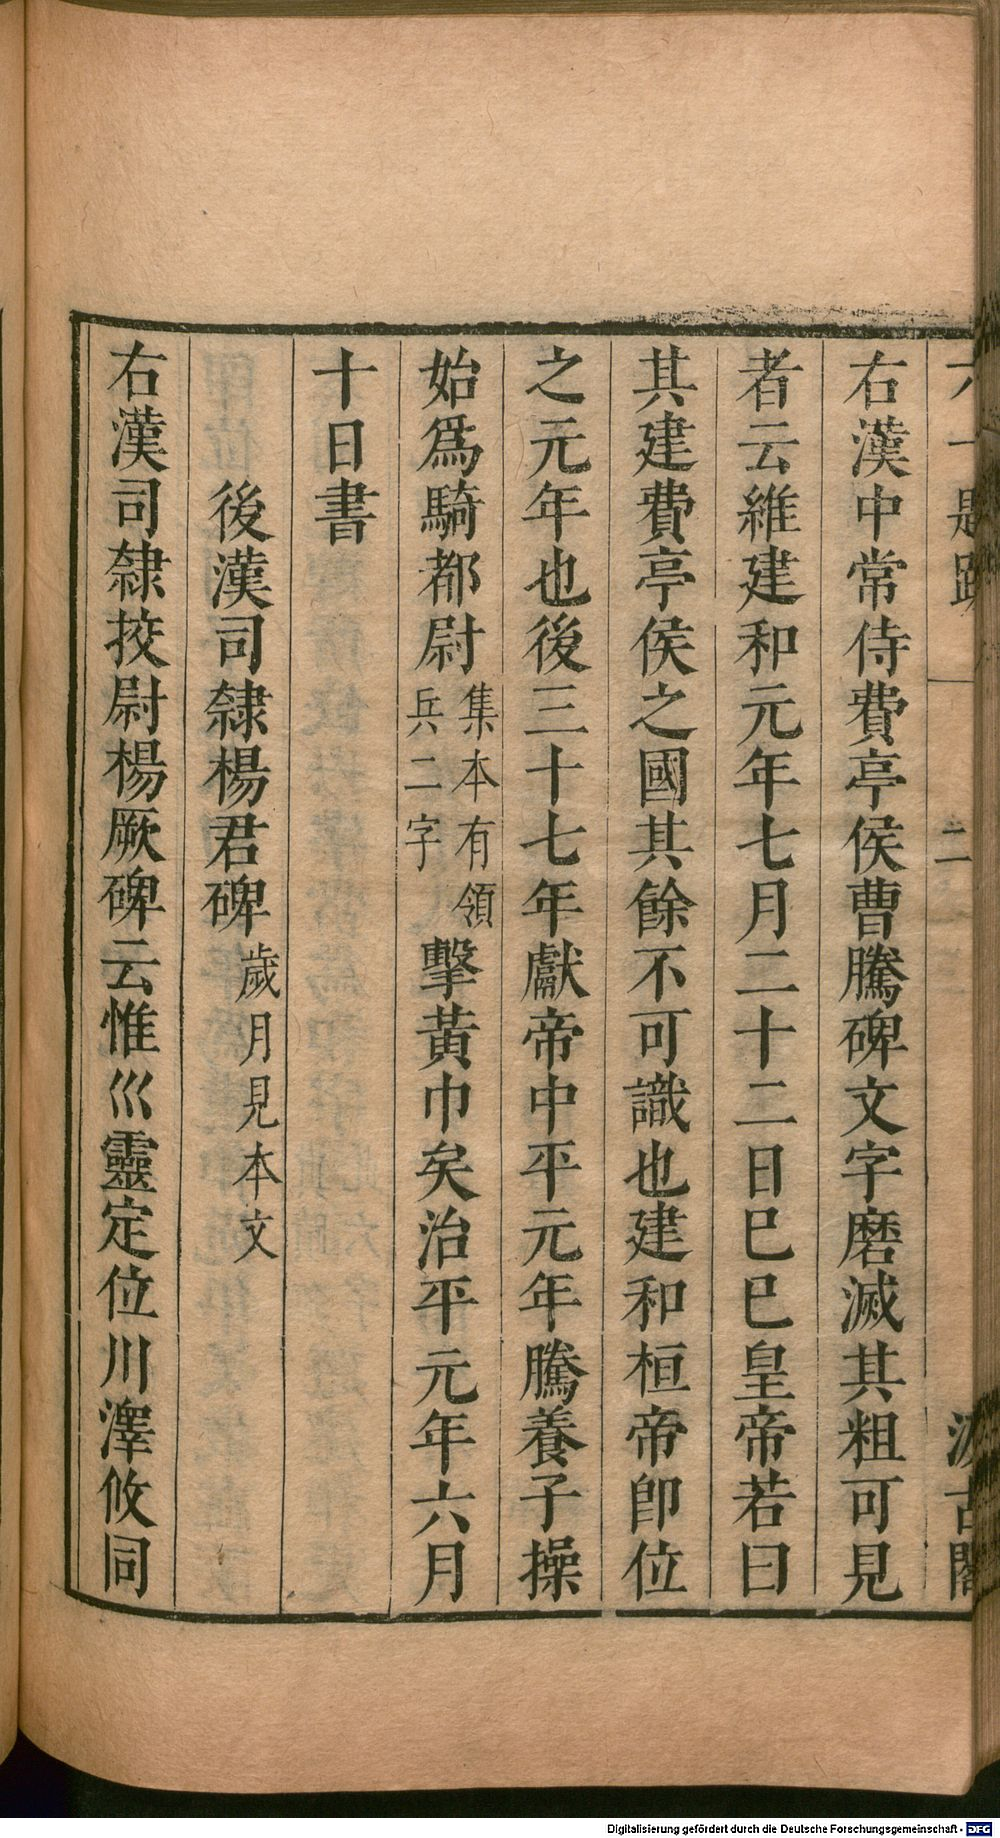 六一題跋 二 汲古閣
右漢中常侍費亭侯曹騰碑文字磨滅其粗可見
者云維建和元年七月二十二日巳巳皇帝若曰
其建費亭侯之國其餘不可識也建和桓帝卽位
之元年也後三十七年獻帝中平元年騰養子操
始爲騎都尉集本有領兵二字擊黃巾矣治平元年六月
十日書
後漢司隸楊君碑歲月見本文
右漢司隸挍尉楊厥碑云惟巛靈定位川澤攸同
Digitalisierung gefördert durch die Deutsche Forschungsgemeinschaft - DFG